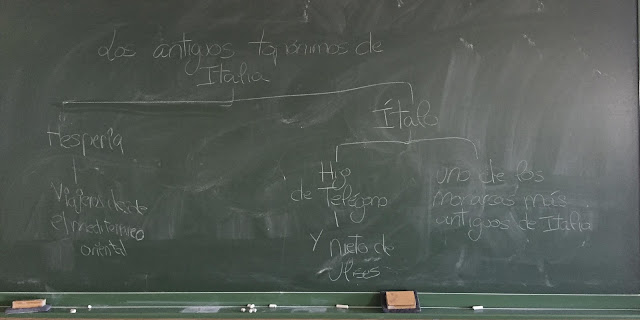 Los antiguos topónimos de
Italia
Hesperia
Viajeros desde
el mediterráneo
oriental
Ítalo
Hijo
de Telégono
y nieto de
Ulises
uno de los
monarcas más
antiguos de Italia